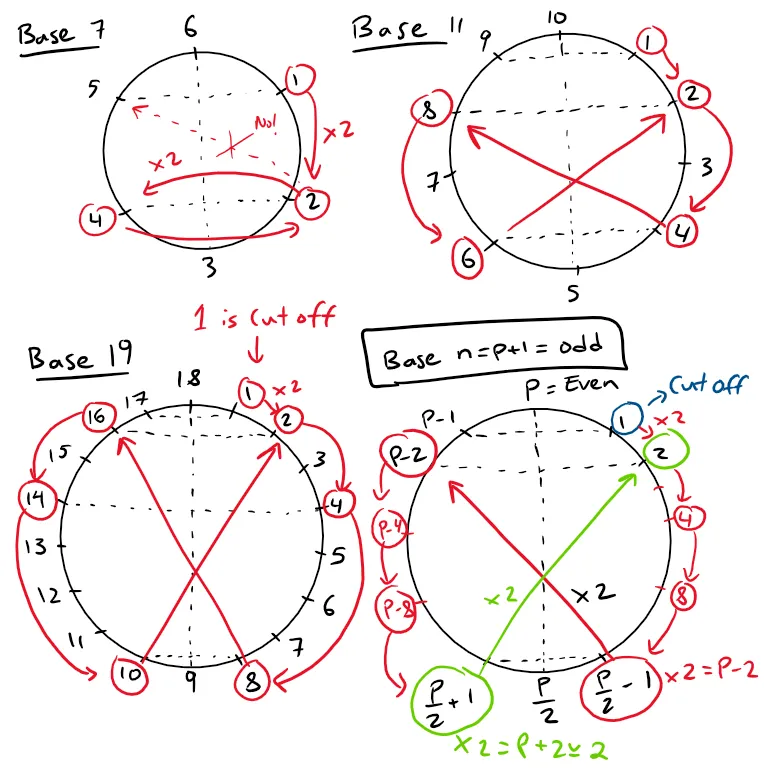 Base 7
6
5
1
No!
x2
x2
4
2
3
Base 11
10
9
1
8
2
7
3
6
4
5
1 is cut off
Base 19
18
17
1
x2
16
2
15
3
14
4
13
5
12
6
11
7
10
9
8
Base n=P+1= odd
P = Even
P-1
1
Cut off
x2
P-2
2
P-4
4
P-8
8
x2
x2
P/2 + 1
P/2
P/2 - 1
x2 = P-2
x2 = P+2 ≌ 2